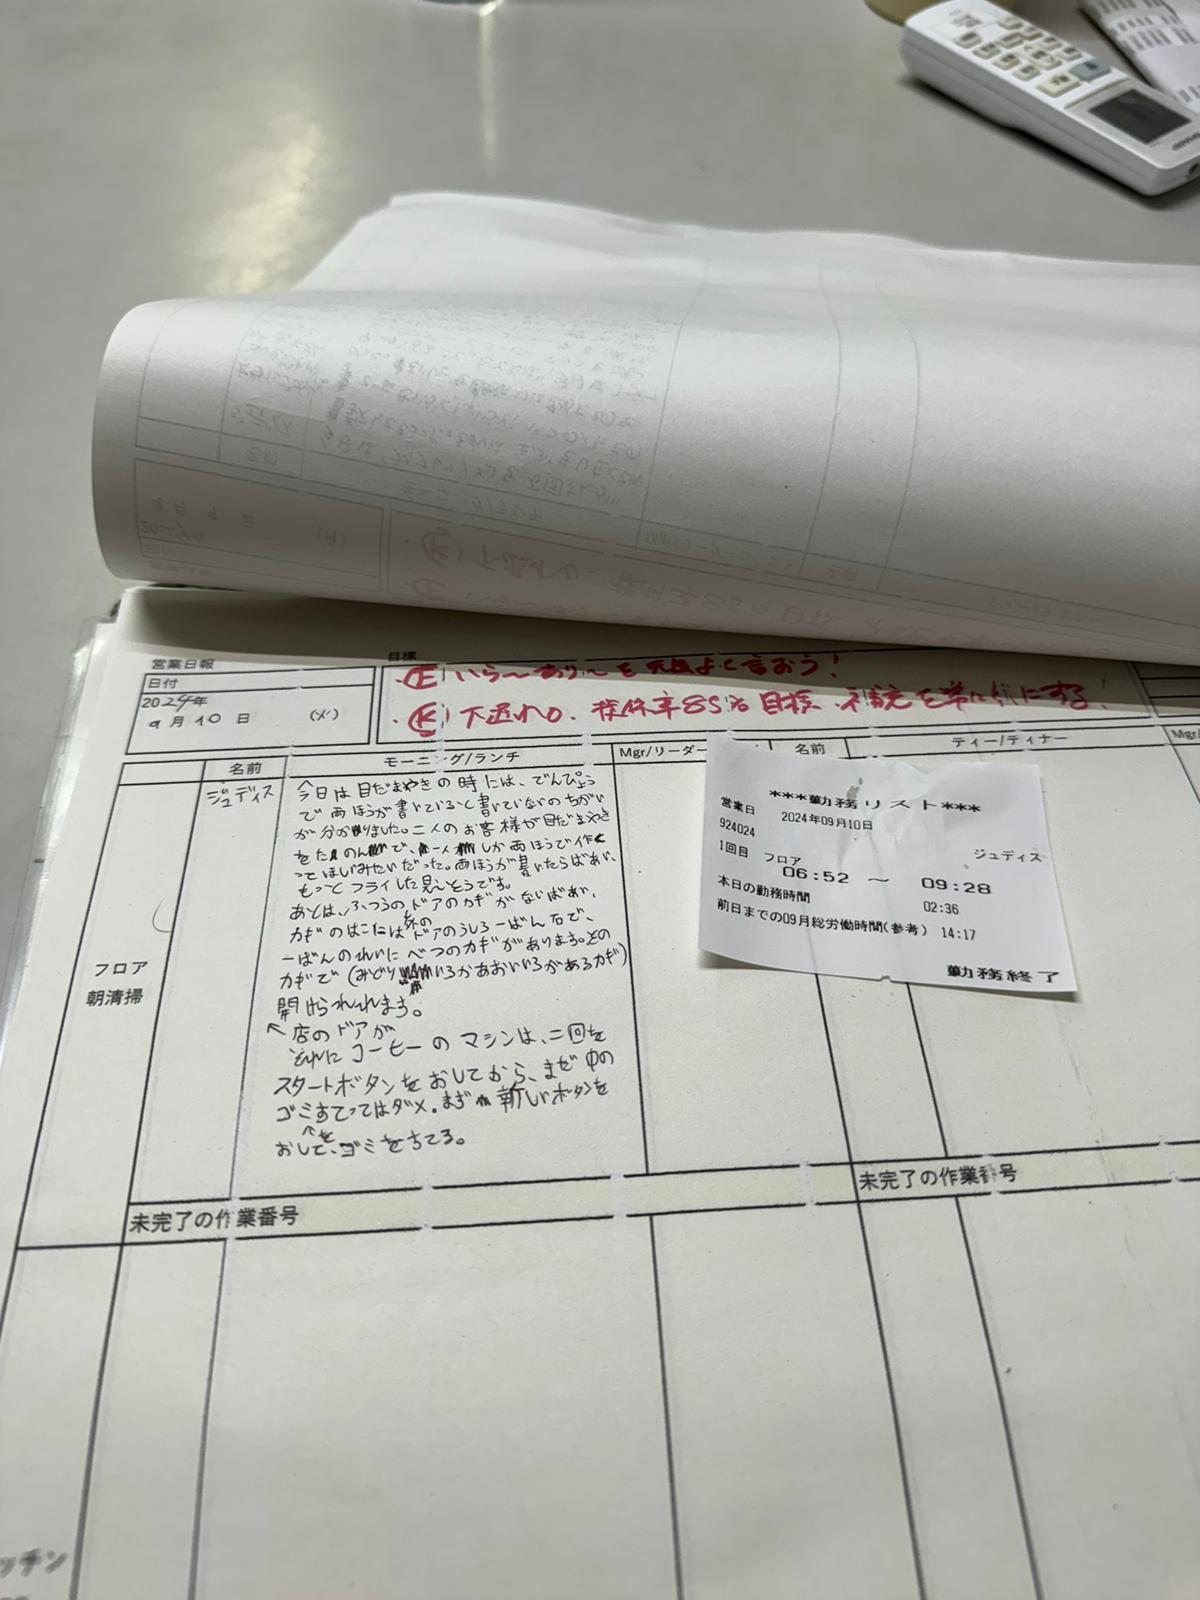 営業日報
目標
日付
2024年
9月10日 (火)
・Ⓕ いら〜あり〜を元気よく言おう!
・Ⓚ 下選れ0. 提供率85%目標、補充を常に
にする!
名前
モーニング/ランチ
Mgr/リーダー
名前
ティー/ディナー
Mgr/
ジュディス
今日は目だまやきの時には、でんぴょう
で両ほうが書いているか書いていないのちがい
が分かりました。二人のお客様が目だまやき
をたのんで、一人しか両ほうで作
ってほしいみたいだった。両ほうが書いたらばあい、
もっとフライした見んとうです。
あとは、ふつうのドアのカギがないばあい、
カギのはこたは外のドアのうしろ一ばん右で、
一ばんのれいにべつのカギがあります。その
カギで(みどりいろかあおいいろがあるカギ)
開けられれます。
↖店のドアが
それにコーヒーのマシンは、二回を
スタートボタンをおしてから、まだ中の
ゴミをすてってはダメ。まず新しいボタンを
おして、ゴミをちてる。
フロア
朝清掃
未完了の作業番号
未完了の作業番号
ッチン
***勤務リスト***
営業日 2024年09月10日
924024 ジュディス
1回目 フロア
06:52 ～ 09:28
本日の勤務時間 02:36
前日までの09月総労働時間(参考) 14:17
勤務終了
SHARP